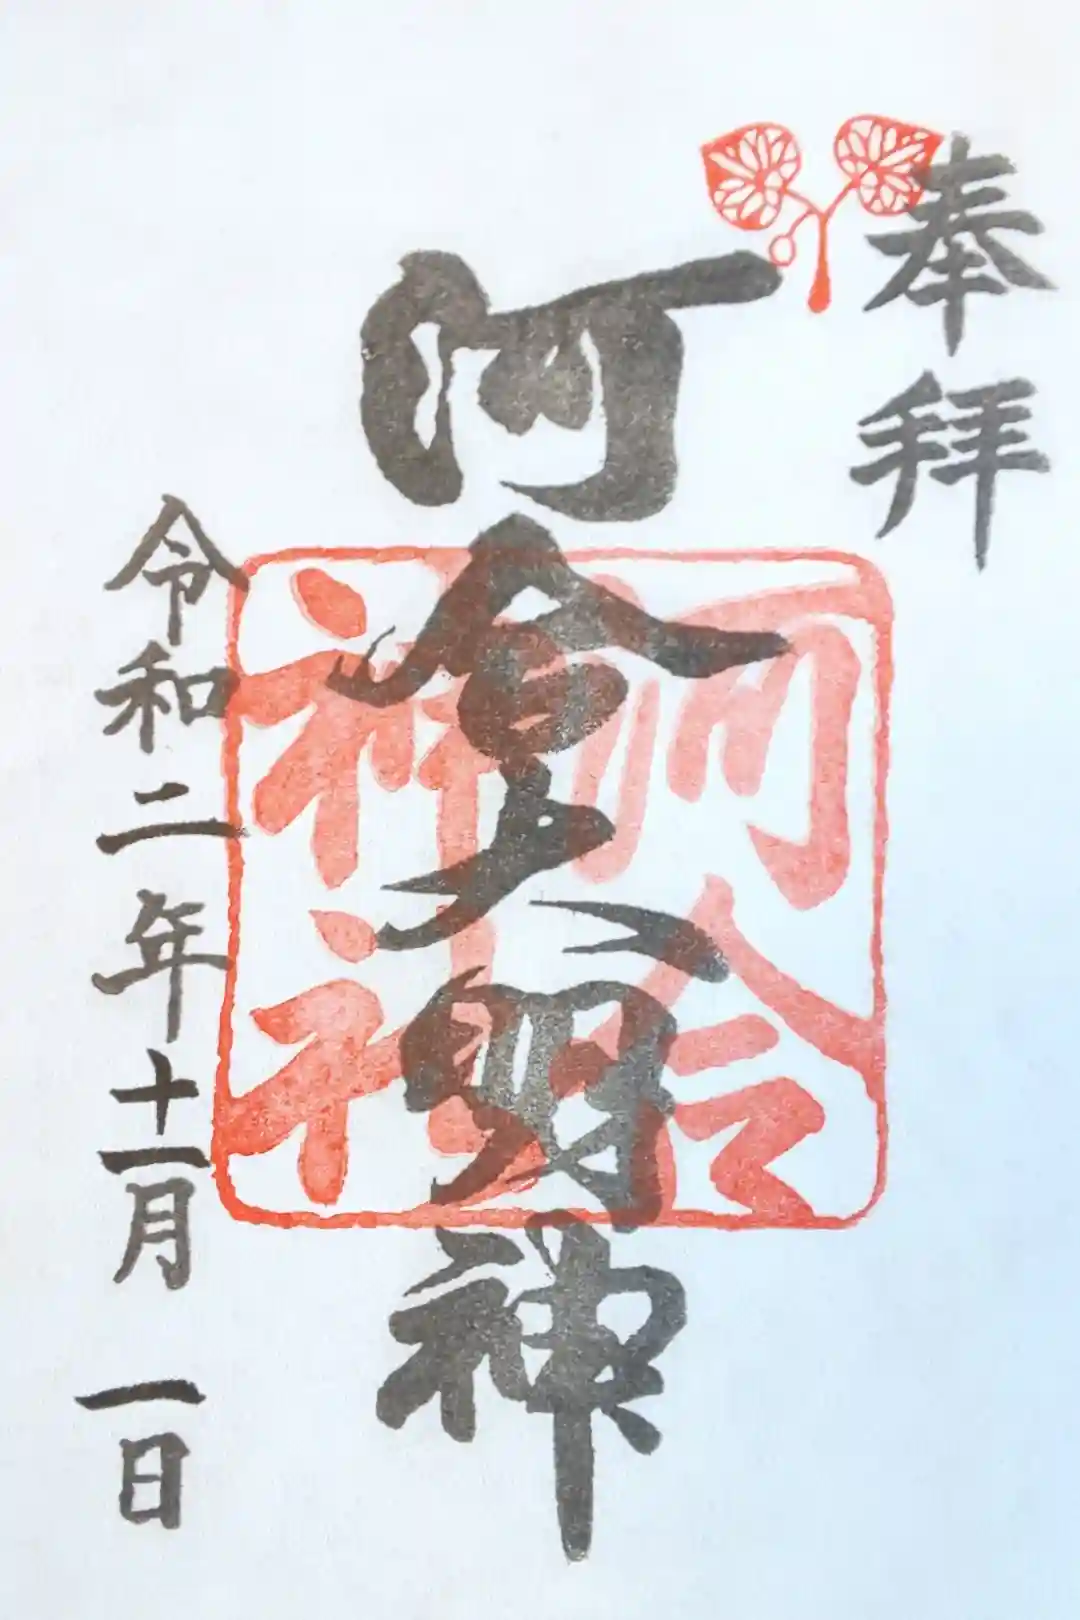 奉拝
河合大明神
河合
神社
令和二年十一月 一日